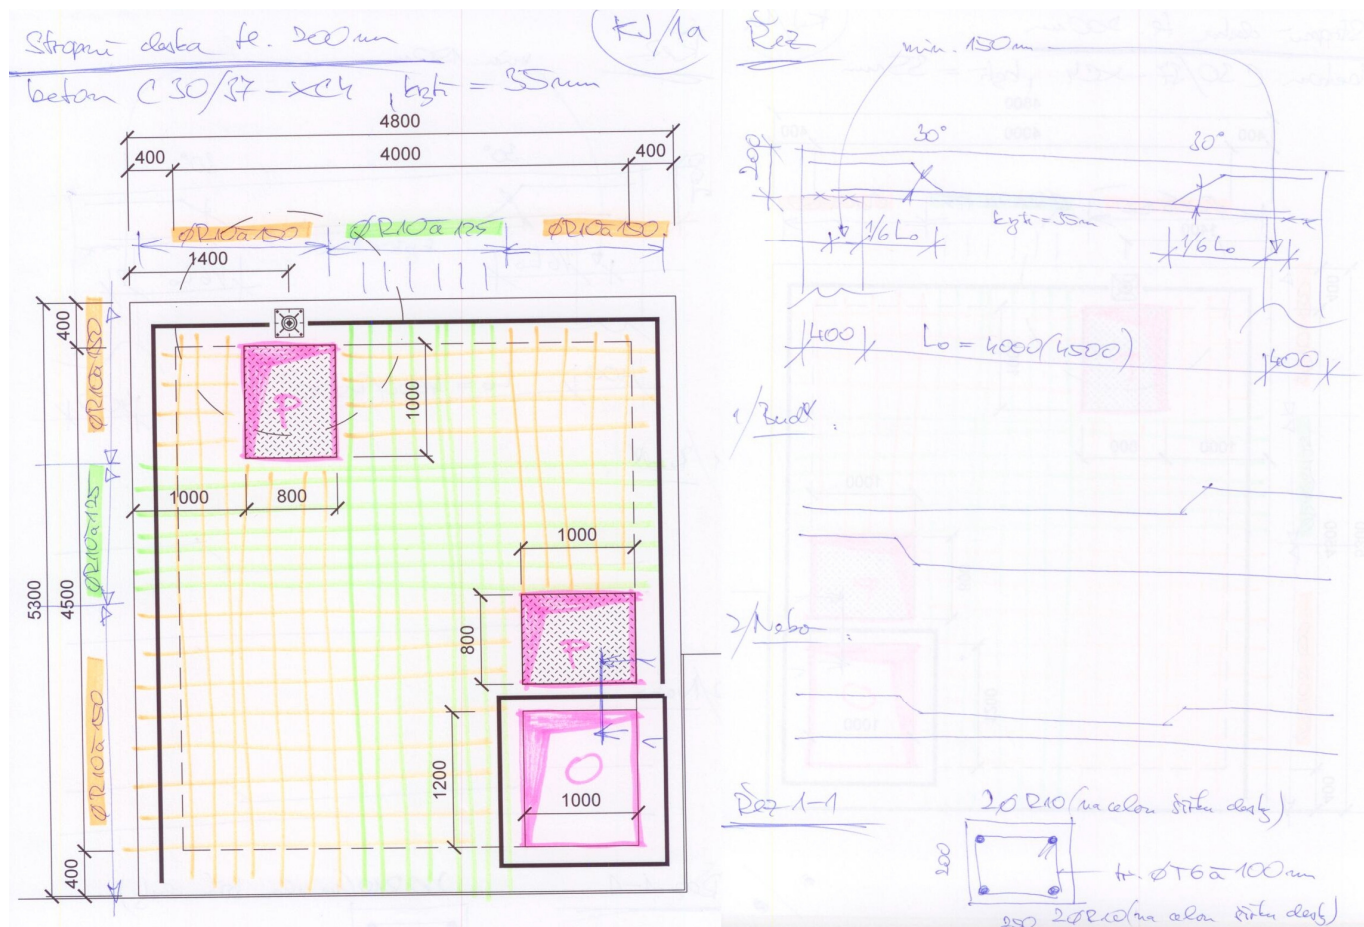 Stropní deska tl. 200mm
KJ/1a
beton C 30/37 – XC4 , krytí = 35mm
4800
400
4000
400
ØR10 à 150
ØR10 à 125
ØR10 à 150
1400
400
ØR10 à 150
1000
P
1000
800
ØR10 à 125
5300
4500
1000
800
P
ØR10 à 150
1200
O
1000
400
Řez
min. 150mm
200
30°
30°
krytí = 35mm
1/6 Lo
1/6 Lo
400
Lo = 4000(4500)
400
1/ Buď :
2/ Nebo :
Řez 1-1
2ØR10 (na celou šířku desky)
200
tř. ØT6 à 100mm
250
2ØR10 (na celou šířku desky)